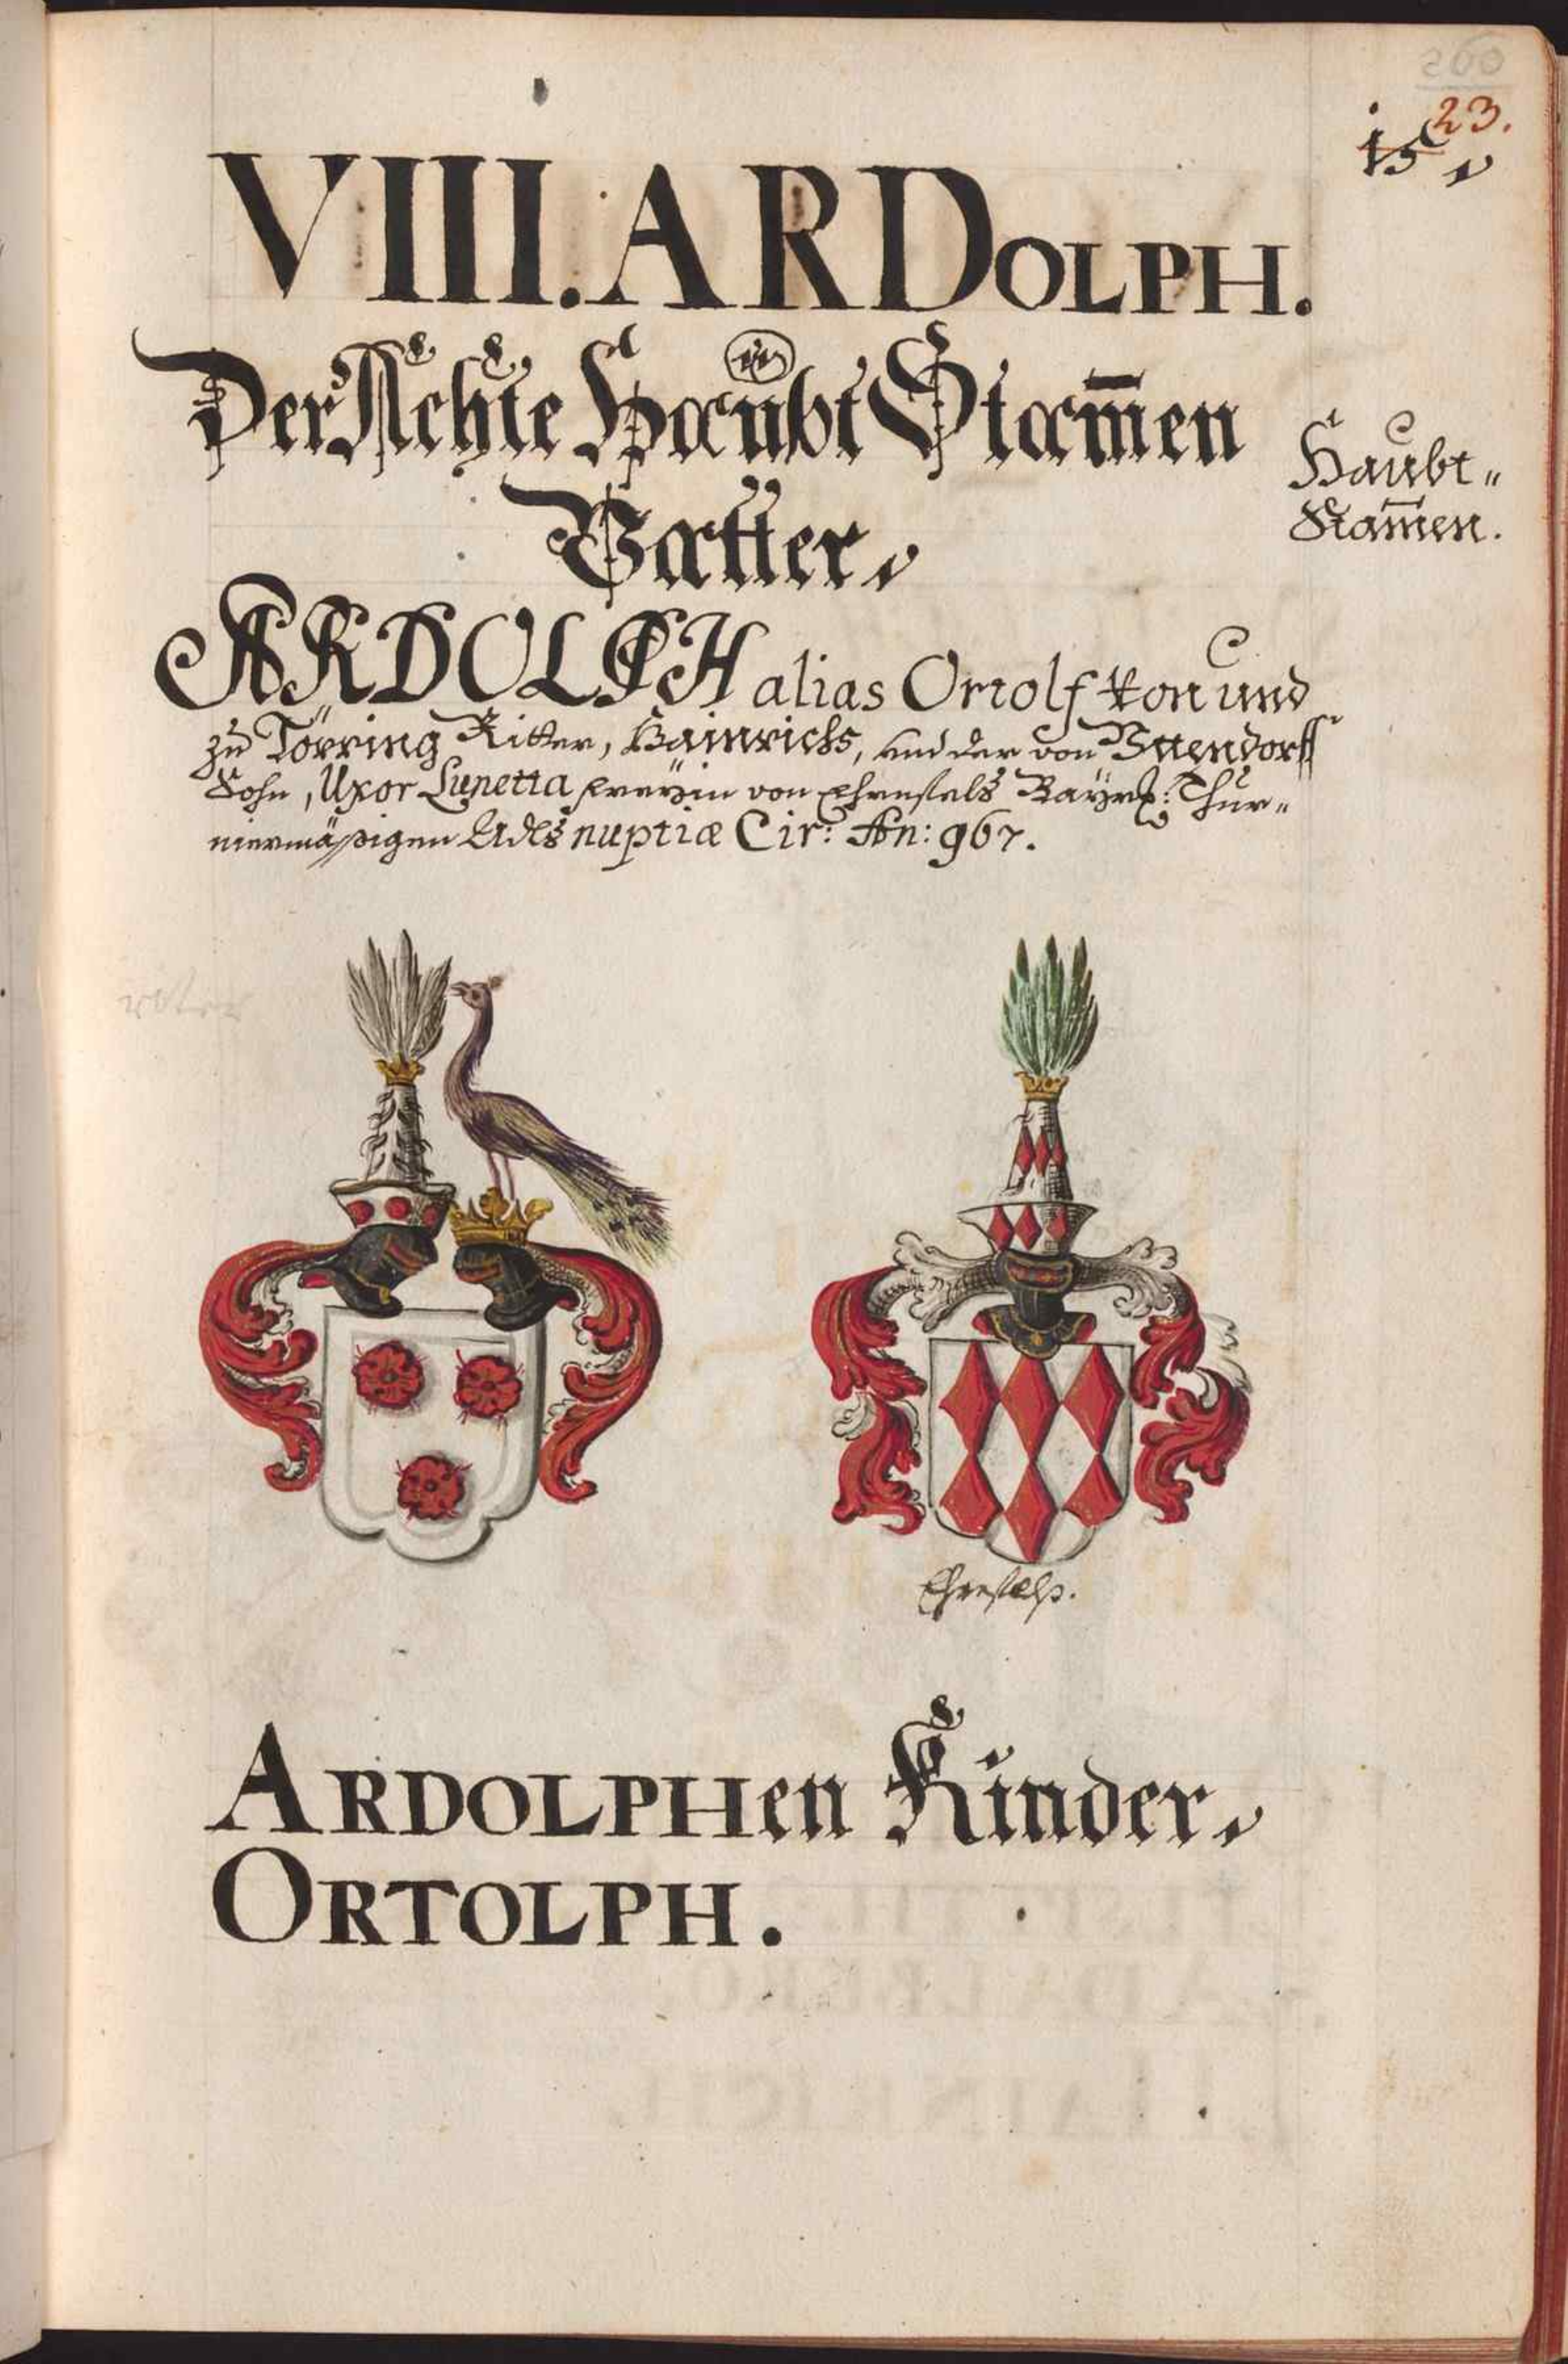 260
23.
15
VIII. ARDOLPH.
Der Achte Haubt Stam̄en
Vatter,
Haubt„
Stam̄en.
ARDOLPH alias Ortolf von und
zu Törring Ritter, Hainrichs, und der von Uttendorff
Sohn, Uxor Lunetta freyin von Ehrnfels Bayrl: Thur„
niermäßigen Adls nuptiæ Cir: An: 967.
Ehrnfelß.
ARDOLPHen Kinder,
ORTOLPH.